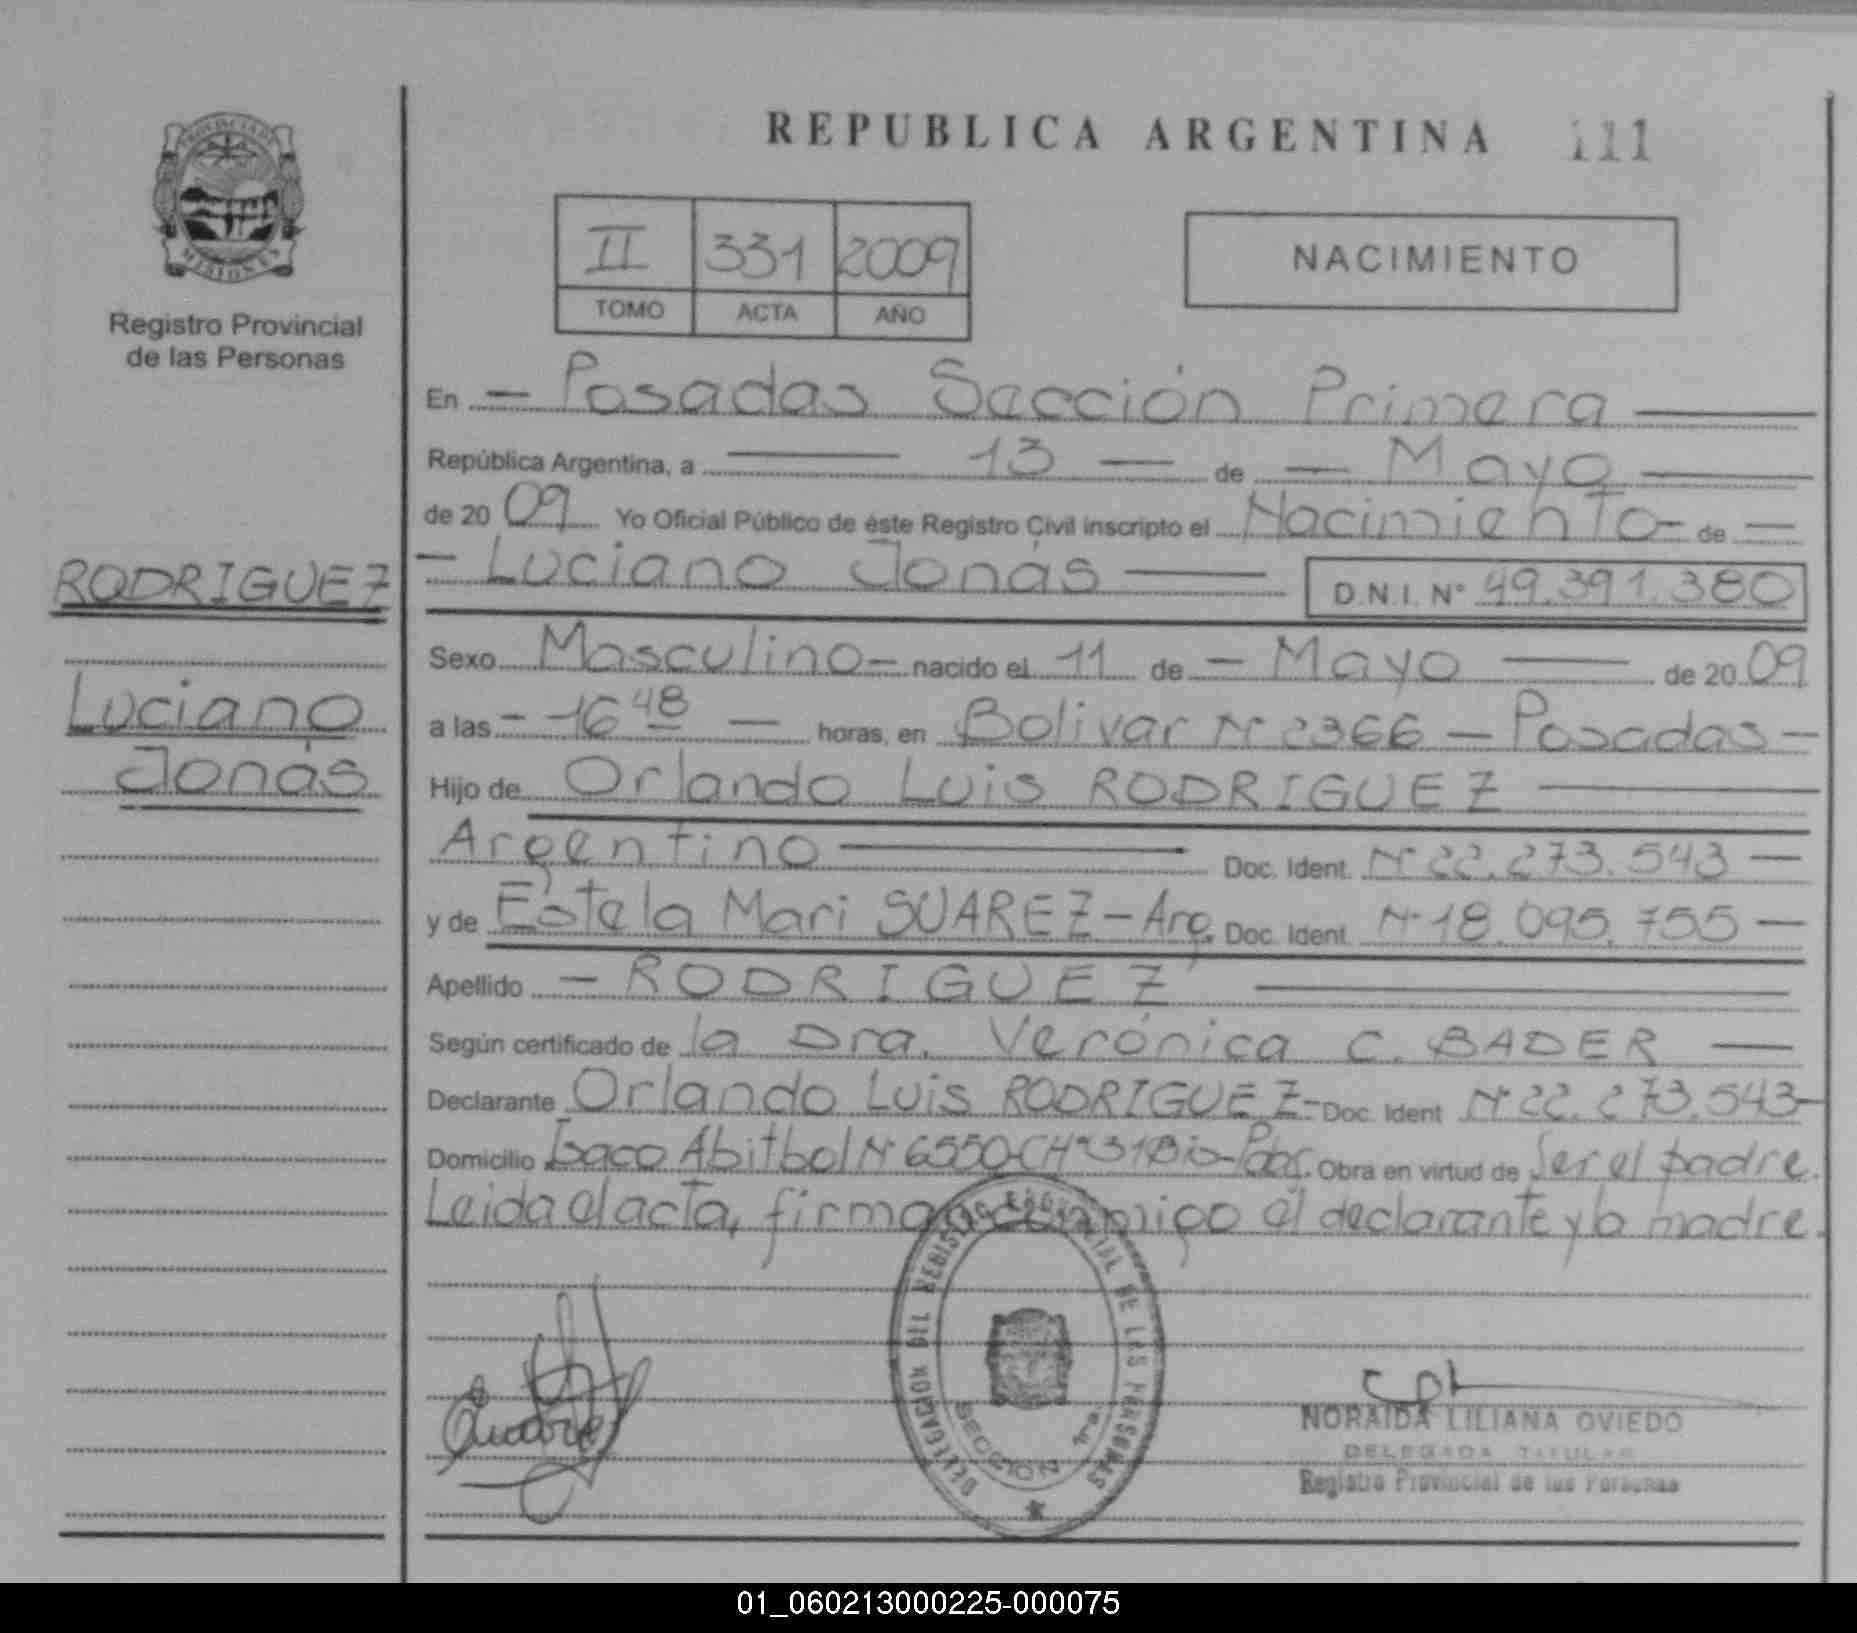 PROVINCIA DE
MISIONES
Registro Provincial
de las Personas
RODRIGUEZ
Luciano
Jonás
REPUBLICA ARGENTINA 111
II 331 2009
TOMO ACTA AÑO
NACIMIENTO
En - Posadas Sección Primera
República Argentina, a 13 de Mayo
de 2009 Yo Oficial Público de éste Registro Civil inscripto el Nacimiento de
- Luciano Jonás D.N.I. N° 49.391.380
Sexo Masculino - nacido el 11 de - Mayo de 2009
a las - 16 48 - horas, en Bolivar N° 2366 - Posadas -
Hijo de Orlando Luis RODRIGUEZ
Argentino Doc. Ident. N° 22.273.543
y de Estela Mari SUAREZ - Arg. Doc. Ident. N° 18.095.755
Apellido - RODRIGUEZ
Según certificado de la Dra. Verónica C. BADER
Declarante Orlando Luis RODRIGUEZ - Doc. Ident N° 22.273.543 -
Domicilio Isaco Abitbol N° 6550 - CH 31 Obra en virtud de Ser el padre.
Leida el acta, firman conmigo el declarante y la madre.
DELEGACION REGISTRO PROVINCIAL DE LAS PERSONAS
SECCION 1ra.
NORAIDA LILIANA OVIEDO
DELEGADA TITULAR
Registro Provincial de las Personas
01_060213000225-000075